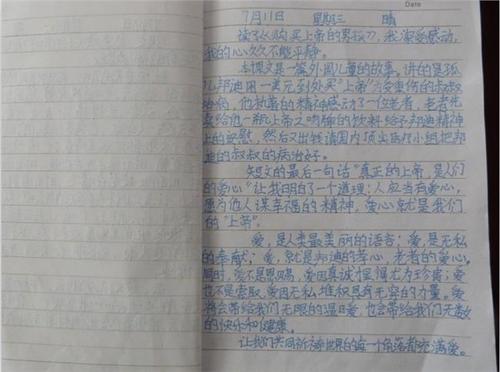 Date
7月11日 星期三 晴
读了《购买上帝的男孩》，我深受感动，
我的心久久不能平静。
本课文是一篇外国儿童的故事。讲的是孤
儿邦迪用一美元到处买"上帝"为安要何的叔叔
治病，他执著的精神感动了一位老者，老者先
卖给他一瓶"上帝之吻"牌的饮料给予邦迪精神
上的安慰，然后又出钱请国内顶尖医疗小组把邦
迪的叔叔的病治好。
短文的最后一句话"真正的上帝，是人们
的爱心"让我明白了一个道理：人应当有爱心，
愿为他人谋幸福的精神。爱心就是我们
的"上帝"。
爱，是人类最美丽的语言；爱，是无私
的奉献；爱，就是邦迪的孝心，老者的爱心。
同时，爱不是恩赐，爱因真诚怪惜尤为珍贵；爱
也不是索取，爱因无私堆积具有无穷的力量。爱
将会带给我们无限的温暖，也会带给我们无数
的快乐和健康。
让我们共同祈祷世界的每一个角落都充满爱。